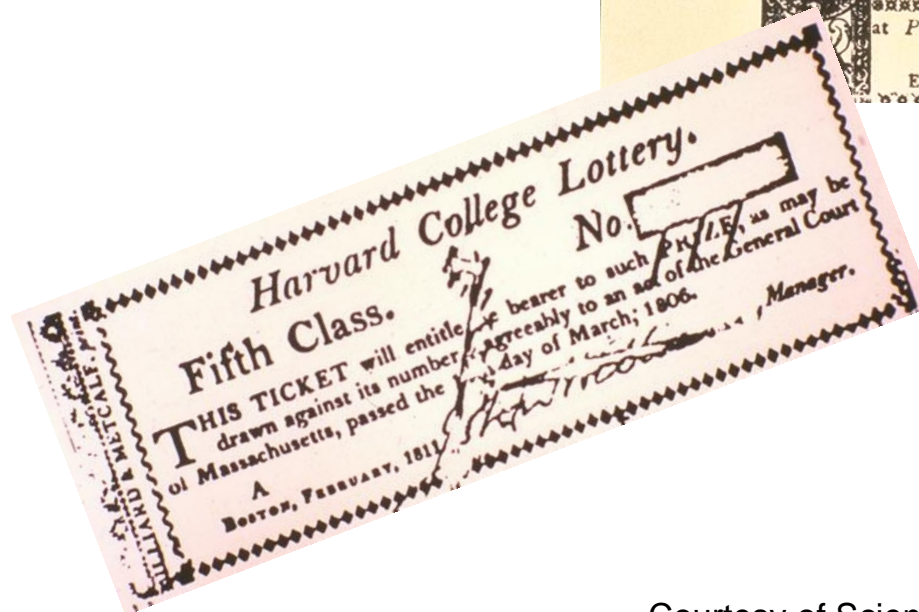 at P
E
Harvard College Lottery.
Fifth Class. No.
THIS TICKET will entitle bearer to such PRIZE, as may be
drawn against its number agreeably to an act of the General Court
of Massachusetts, passed the day of March; 1806.
A Manager.
BOSTON, FEBRUARY, 1811
HILLIARD & METCALF,
Courtesy of Scien